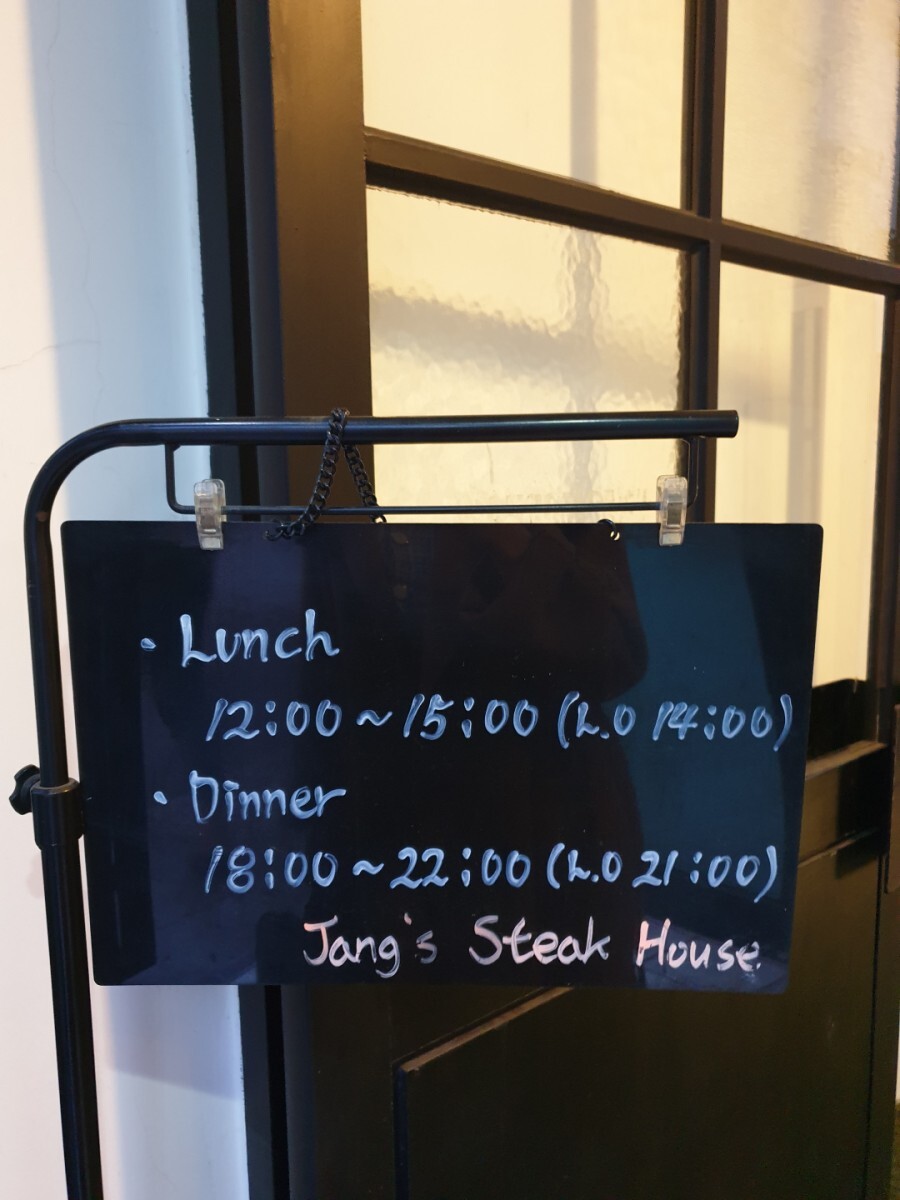 · Lunch
12:00 ~ 15:00 (L.O 14:00)
· Dinner
18:00 ~ 22:00 (L.O 21:00)
Jang's Steak House.